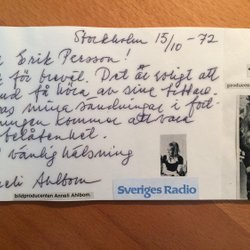 Stockholm 15/10 - 72
Erik Persson!
för brevet. Det är roligt att
få höra av sina tittare.
mina sändningar i fort-
ningen kommer att vara
belåtenhet.
vänlig hälsning
Ahlbom
bildproducenten Anneli Ahlbom.
Sveriges Radio